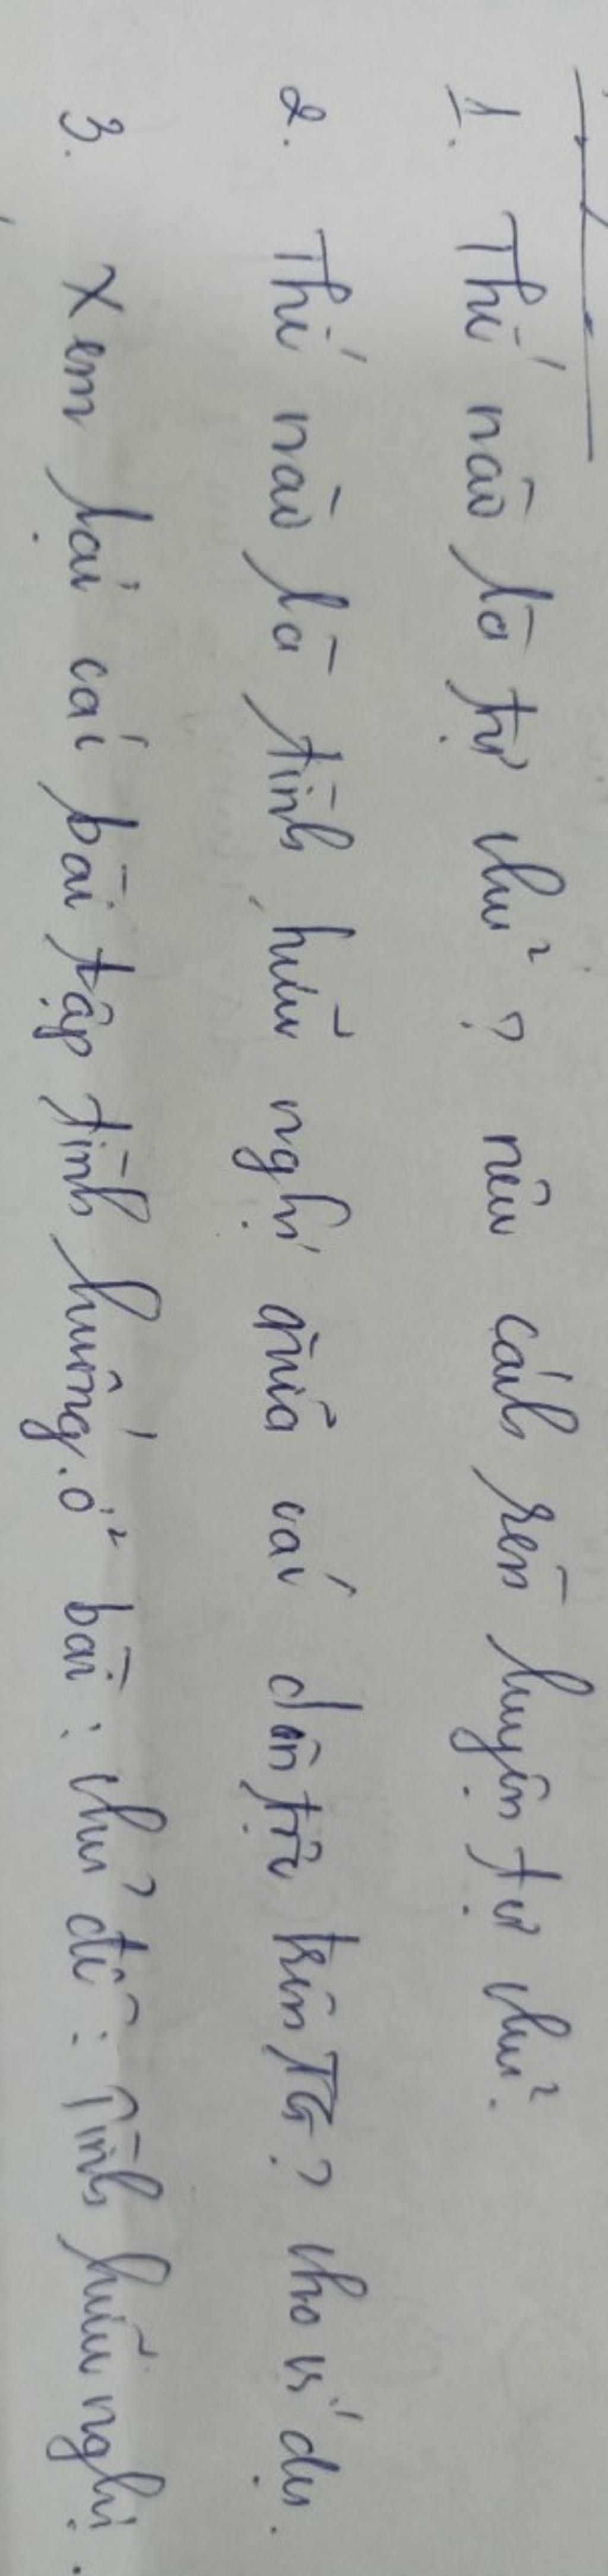 1. Thế nào là tự chủ? nêu cách rèn luyện tự chủ.
2. Thế nào là tình hữu nghị giữa các dân tộc trên TG? cho ví dụ.
3. Xem lại các bài tập tình huống ở bài: chủ đề: Tình hữu nghị.